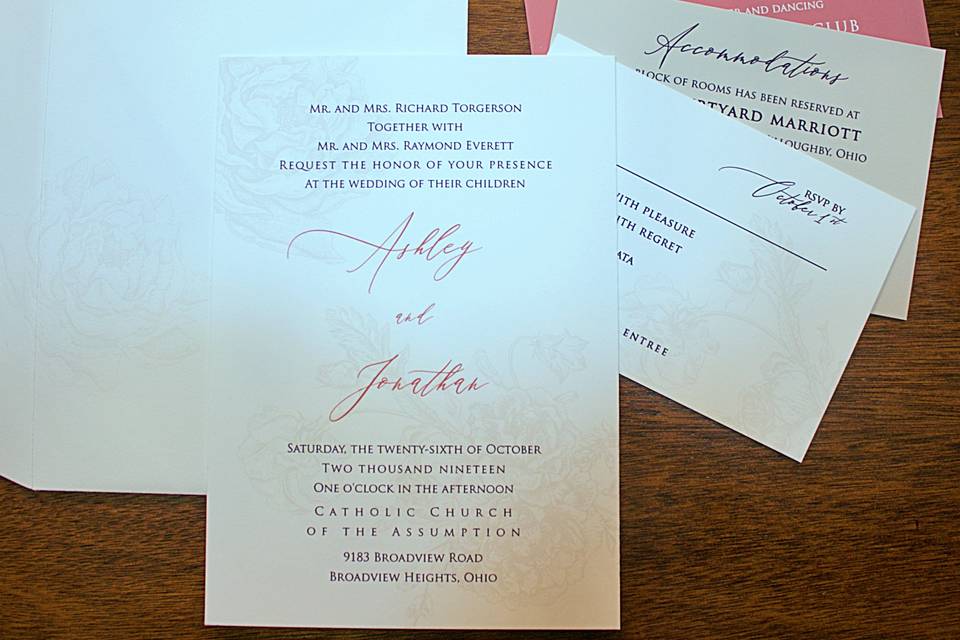 Mr. and Mrs. Richard Torgerson
Together with
Mr. and Mrs. Raymond Everett
Request the honor of your presence
at the wedding of their children
Ashley
and
Jonathan
Saturday, the twenty-sixth of October
Two thousand nineteen
One o'clock in the afternoon
Catholic Church
of the Assumption
9183 Broadview Road
Broadview Heights, Ohio
RSVP by
October 1st
with pleasure
with regret
entree
Accommodations
block of rooms has been reserved at
Marriott
Ohio
and dancing
Club